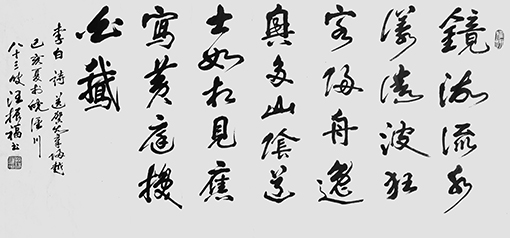 鏡湖流水
漾清波狂
客歸舟逸
興多山陰道
士如相見應
寫黃庭換
白鵞
李白詩送賀賓客歸越
己亥夏於皖涇川
八十三叟汪振福書